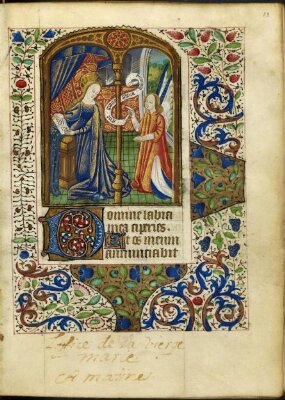 Domine labia
mea aperies.
Et os meum
annunciabit
de la vierge
marie